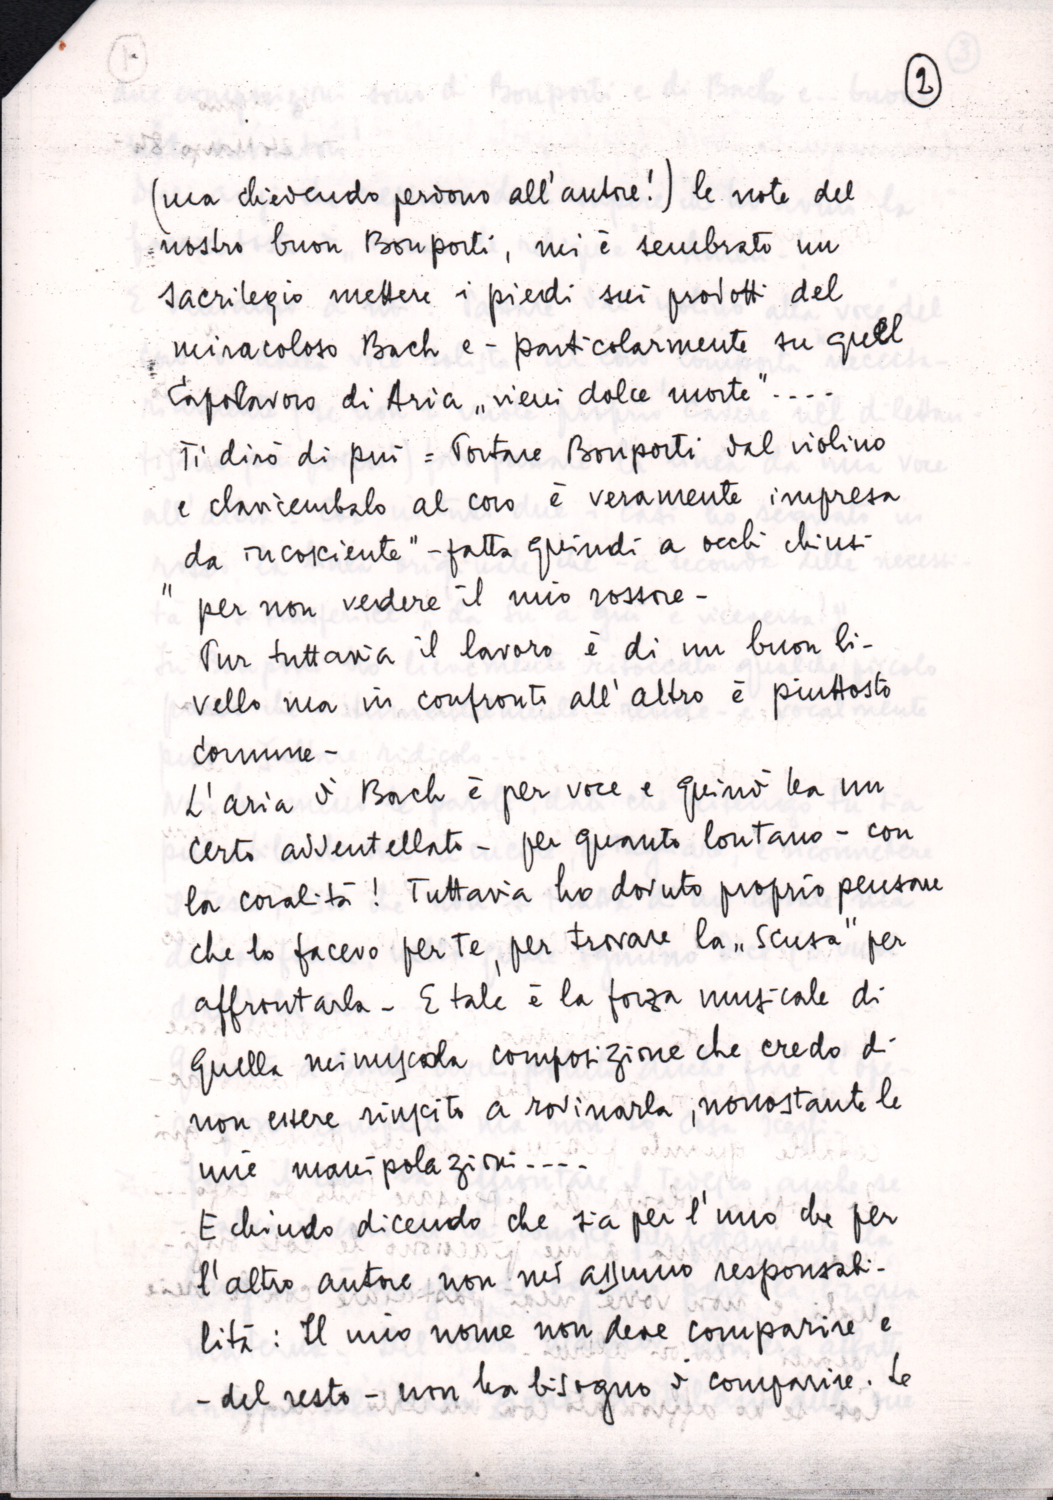 2
(ma chiedendo perdono all'autore!) le note del
nostro buon Bonporti, mi è sembrato un
sacrilegio mettere i piedi sui prodotti del
miracoloso Bach e - particolarmente su quel
Capolavoro di Aria „vieni dolce morte"----
Ti dirò di più = Portare Bonporti dal violino
e clavicembalo al coro è veramente impresa
da incosciente" - fatta quindi a occhi chiusi
" per non vedere il mio rossore -
Pur tuttavia il lavoro è di un buon li-
vello ma in confronto all'altro è piuttosto
comune -
L'aria di Bach è per voce e quindi ha un
certo avventellato - per quanto lontano - con
la coralità! Tuttavia ho dovuto proprio pensare
che lo facevo per te, per trovare la „scusa" per
affrontarla - E tale è la forza musicale di
quella composizione che credo di
non essere riuscito a rovinarla, nonostante le
mie manipolazioni----
E chiudo dicendo che sia per l'uno che per
l'altro autore non mi assumo responsabi-
lità: Il mio nome non deve comparire e
- del resto - non ha bisogno di comparire. Le